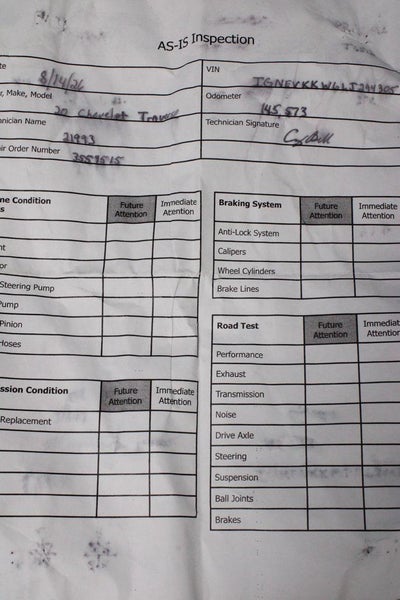 AS-IS Inspection
te
8/14/26
VIN
1GNEVKKW6LJ244305
, Make, Model
20 Chevrolet Traverse
Odometer
145,573
nician Name
21993
Technician Signature
ir Order Number
3553515
ne Condition
s
Future Attention
Immediate Attention
nt
or
Steering Pump
Pump
Pinion
Hoses
ssion Condition
Future Attention
Immediate Attention
Replacement
Braking System
Future Attention
Immediate Attention
Anti-Lock System
Calipers
Wheel Cylinders
Brake Lines
Road Test
Future Attention
Immediat Attention
Performance
Exhaust
Transmission
Noise
Drive Axle
Steering
Suspension
Ball Joints
Brakes